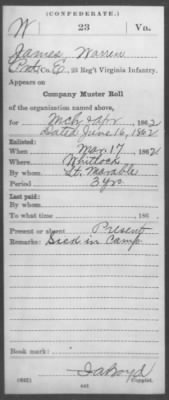 (CONFEDERATE.)
W 23 Va.
James Warren
Pvt. Co. E, 23 Reg't Virginia Infantry.
Appears on
Company Muster Roll
of the organization named above,
for Mch & Apr 1862
Dated June 16, 1862
Enlisted:
When Mar 17 1862
Where Whitlock
By whom Lt. Marable
Period 3 yrs
Last paid:
By whom
To what time 186
Present or absent Present
Remarks: Sick in Camp
Book mark:
(642) Copyist.